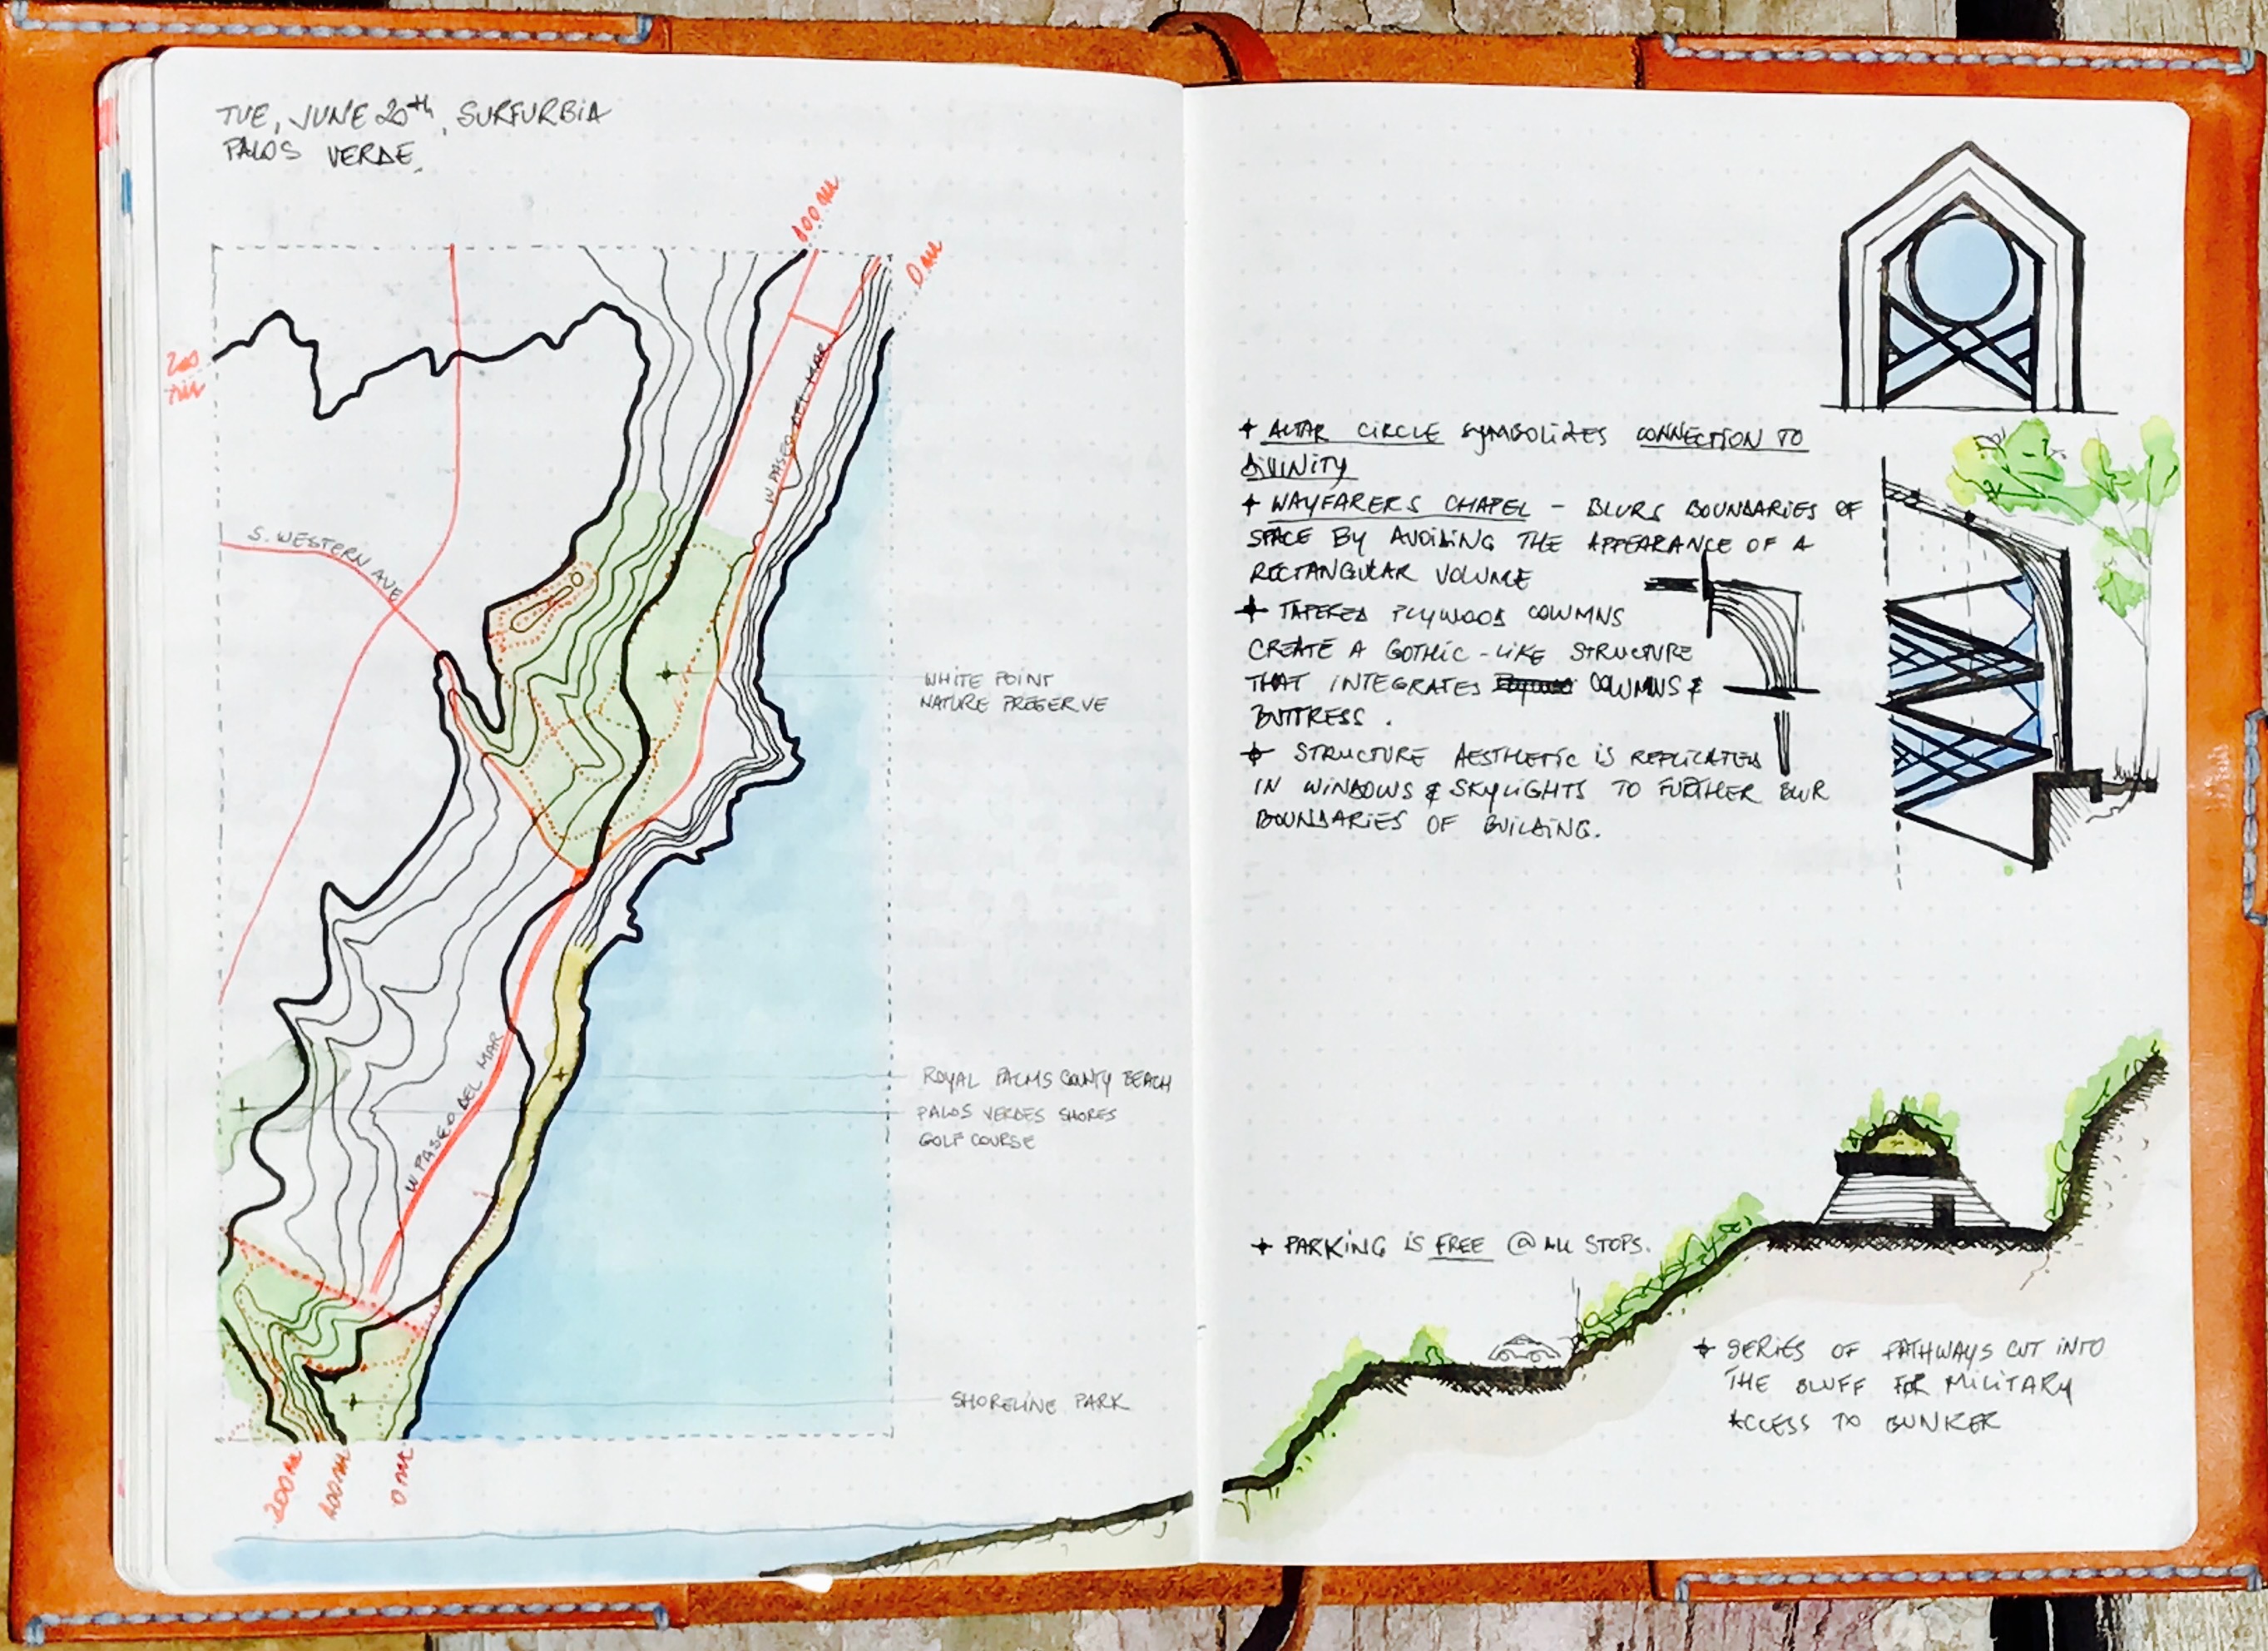 TUE, JUNE 20th, SURFURBIA
PALOS VERDE,
100 M
0 M
200
M
W PASEO DEL MAR
S. WESTERN AVE
WHITE POINT
NATURE PRESERVE
W PASEO DEL MAR
ROYAL PALMS COUNTY BEACH
PALOS VERDES SHORES
GOLF COURSE
SHORELINE PARK
200 M
100 M
0 M
ALTAR CIRCLE SYMBOLIZES CONNECTION TO
DIVINITY
WAYFARERS CHAPEL - BLURS BOUNDARIES OF
SPACE BY AVOIDING THE APPEARANCE OF A
RECTANGULAR VOLUME
TAPERED PLYWOOD COLUMNS
CREATE A GOTHIC-LIKE STRUCTURE
THAT INTEGRATES COLUMNS &
BUTTRESS.
STRUCTURE AESTHETIC IS REPLICATED
IN WINDOWS & SKYLIGHTS TO FURTHER BLUR
BOUNDARIES OF BUILDING.
PARKING IS FREE @ ALL STOPS.
SERIES OF PATHWAYS CUT INTO
THE BLUFF FOR MILITARY
ACCESS TO BUNKER